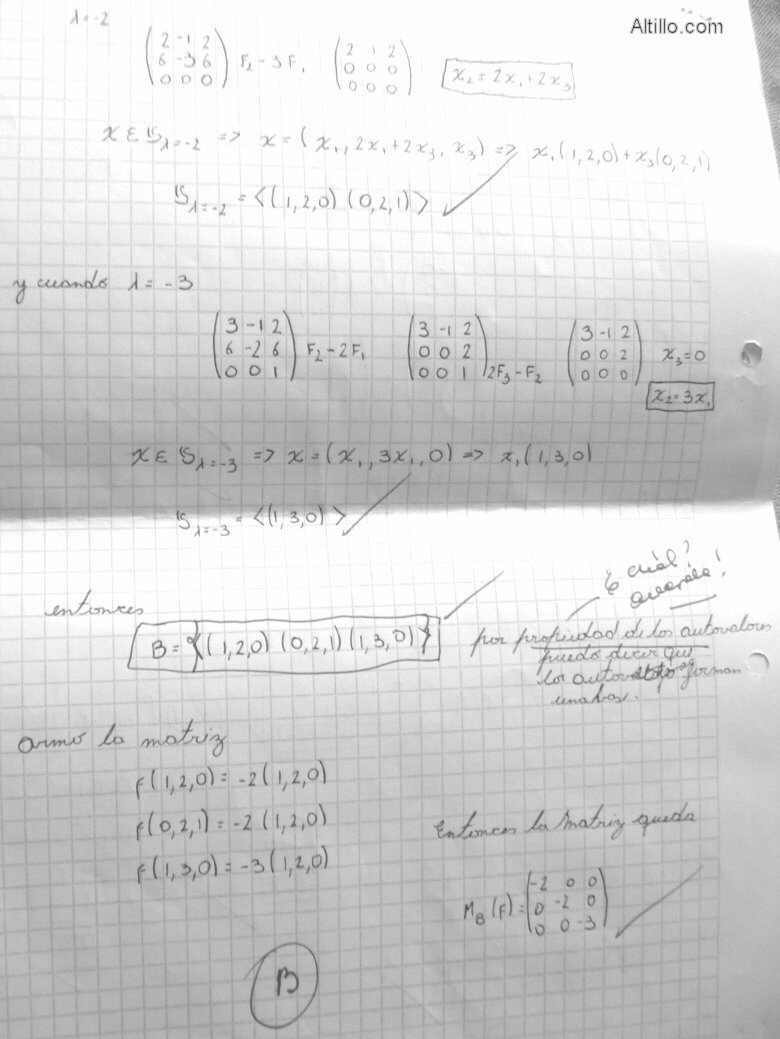 Altillo.com
λ = -2
( 2 -1 2 / 6 -3 6 / 0 0 0 ) F₂ - 3F₁ ( 2 -1 2 / 0 0 0 / 0 0 0 ) x₂ = 2x₁ + 2x₃
x ∈ S λ=-2 => x = (x₁, 2x₁ + 2x₃, x₃) => x₁(1,2,0) + x₃(0,2,1)
S λ=-2 = <(1,2,0) (0,2,1)> ✓
y cuando λ = -3
( 3 -1 2 / 6 -2 6 / 0 0 1 ) F₂ - 2F₁ ( 3 -1 2 / 0 0 2 / 0 0 1 ) 2F₃ - F₂ ( 3 -1 2 / 0 0 2 / 0 0 0 ) x₃ = 0
x₂ = 3x₁
x ∈ S λ=-3 => x = (x₁, 3x₁, 0) => x₁(1,3,0)
S λ=-3 = <(1,3,0)> ✓
¿cuál?
entonces
B = {(1,2,0) (0,2,1) (1,3,0)} ✓
por propiedad de los autovalores
puedo decir que
los forman
una base.
armo la matriz
f(1,2,0) = -2(1,2,0)
f(0,2,1) = -2(1,2,0)
f(1,3,0) = -3(1,2,0)
Entonces la matriz queda
M_B(F) = ( -2 0 0 / 0 -2 0 / 0 0 -3 ) ✓
B